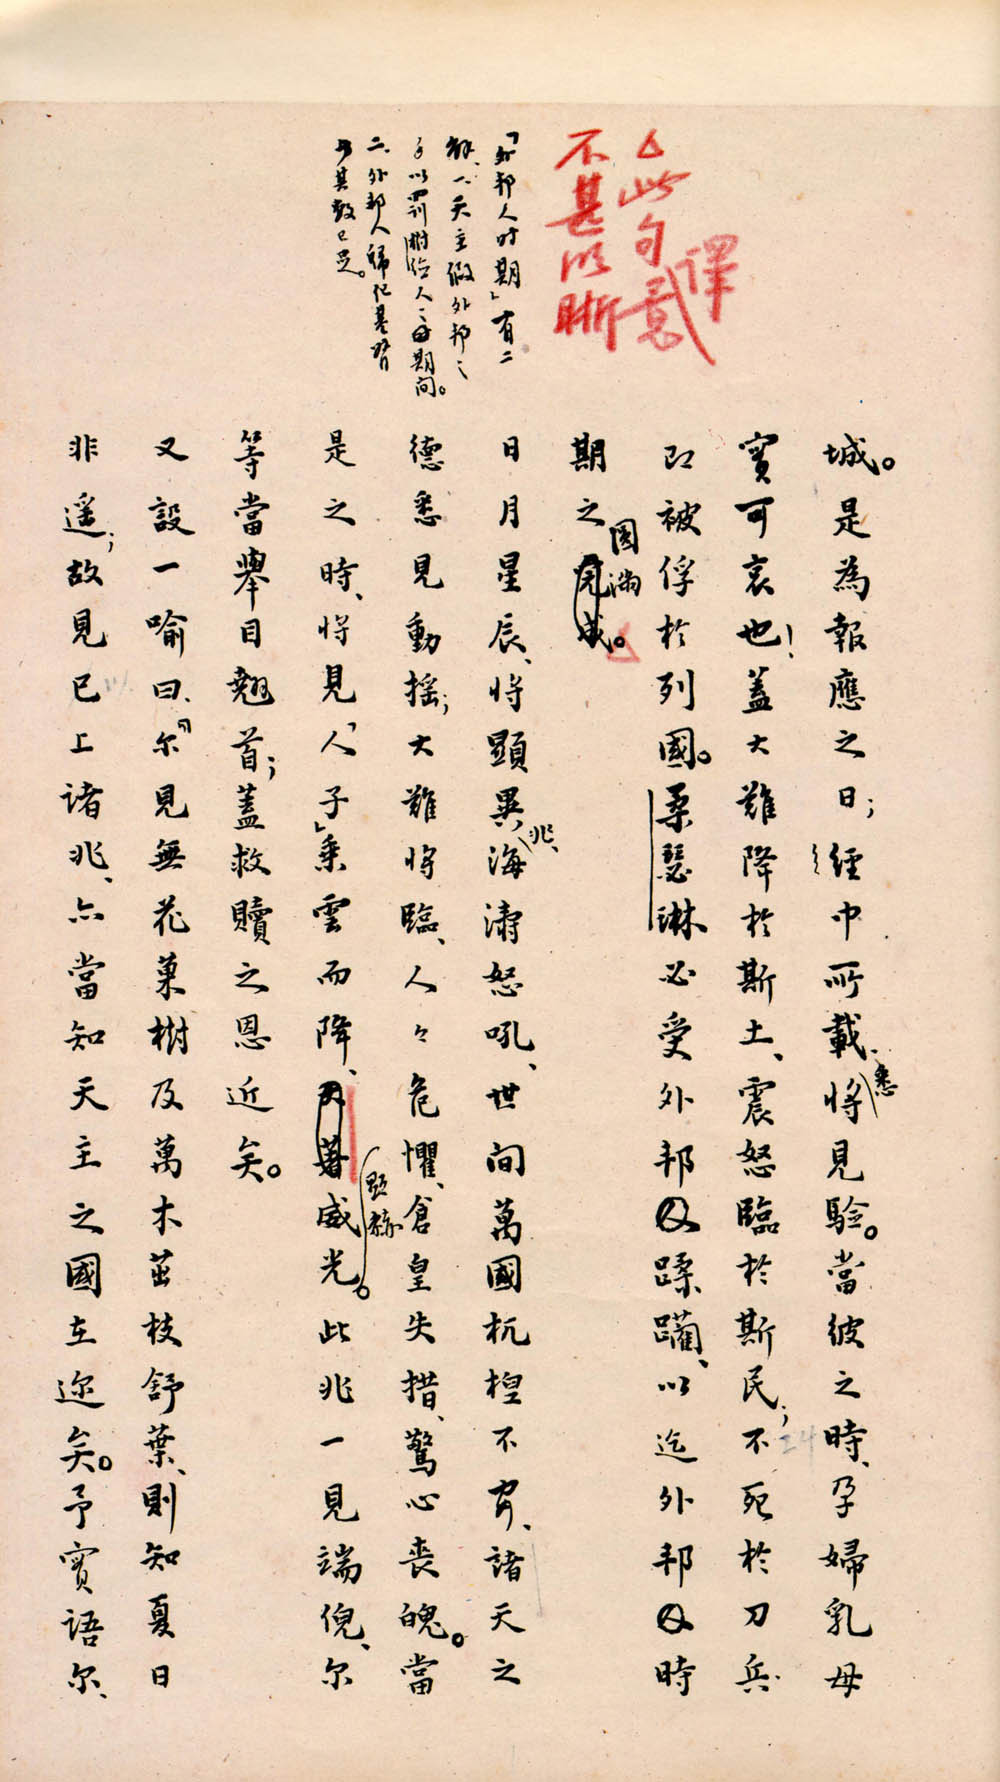 △此句譯意
不甚明晰
「外邦人時期」有二
解、一、天主假外邦之
手以罰樹〇人之期間。
二、外邦人歸化基督
而其數已足。
城。是為報應之日；經中所載、將悉見驗。當彼之時、孕婦乳母
實可哀也！蓋大難降於斯土、震怒臨於斯民；不死於刀兵
即被俘於列國。柔瑟琳必受外邦人蹂躪、以迄外邦人時
期之圓滿。△
日月星辰、將顯異兆、海濤怒吼、世間萬國杌棿不寧、諸天之
德悉見動搖；大難將臨、人々危懼、倉皇失措、驚心喪魄。當
是之時、將見「人子」乘雲而降、顯赫威光。此兆一見端倪、尔
等當舉目翹首；蓋救贖之恩近矣。
又設一喻曰、「尔見無花菓樹及萬木茁枝舒葉、則知夏日
非遥；故見已上諸兆、亦當知天主之國在邇矣。予實語尔、